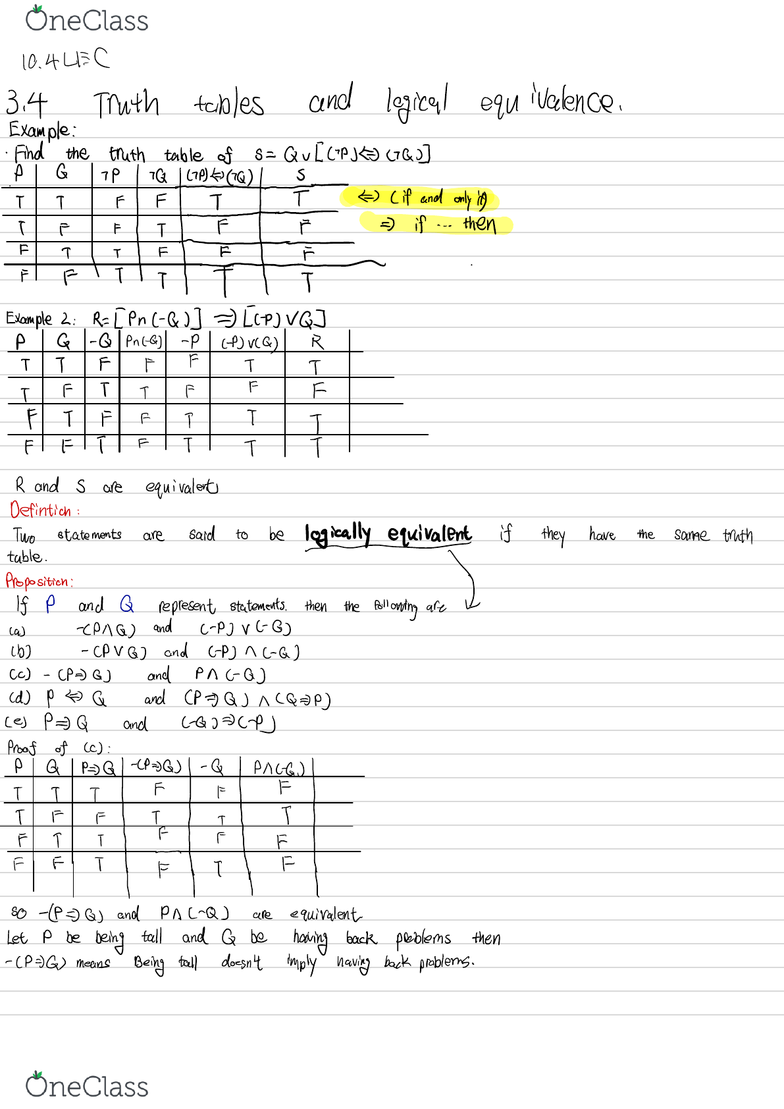 OneClass
10.4 LEC
3.4 Truth tables and logical equivalence.
Example:
· Find the truth table of S = Q∨[(¬P)⇔(¬Q)]
P Q ¬P ¬Q (¬P)⇔(¬Q) S
T T F F T T ⇔ (if and only if)
T F F T F F ⇒ if ... then
F T T F F F
F F T T T T
Example 2: R=[P∩(-Q)] ⇒ [(-P)∨Q]
P Q -Q P∩(-Q) -P (-P)∨(Q) R
T T F F F T T
T F T T F F F
F T F F T T T
F F T F T T T
R and S are equivalent
Defintion:
Two statements are said to be logically equivalent if they have the same truth
table.
Proposition:
If P and Q represent statements. then the following are
(a) -(P∧Q) and (-P)∨(-Q)
(b) -(P∨Q) and (-P)∧(-Q)
(c) -(P⇒Q) and P∧(-Q)
(d) P⇔Q and (P⇒Q)∧(Q⇒P)
(e) P⇒Q and (-Q)⇒(-P)
Proof of (c):
P Q P⇒Q -(P⇒Q) -Q P∧(-Q)
T T T F F F
T F F T T T
F T T F F F
F F T F T F
so -(P⇒Q) and P∧(-Q) are equivalent
Let P be being tall and Q be having back problems then
-(P⇒Q) means Being tall doesn't imply having back problems.
OneClass